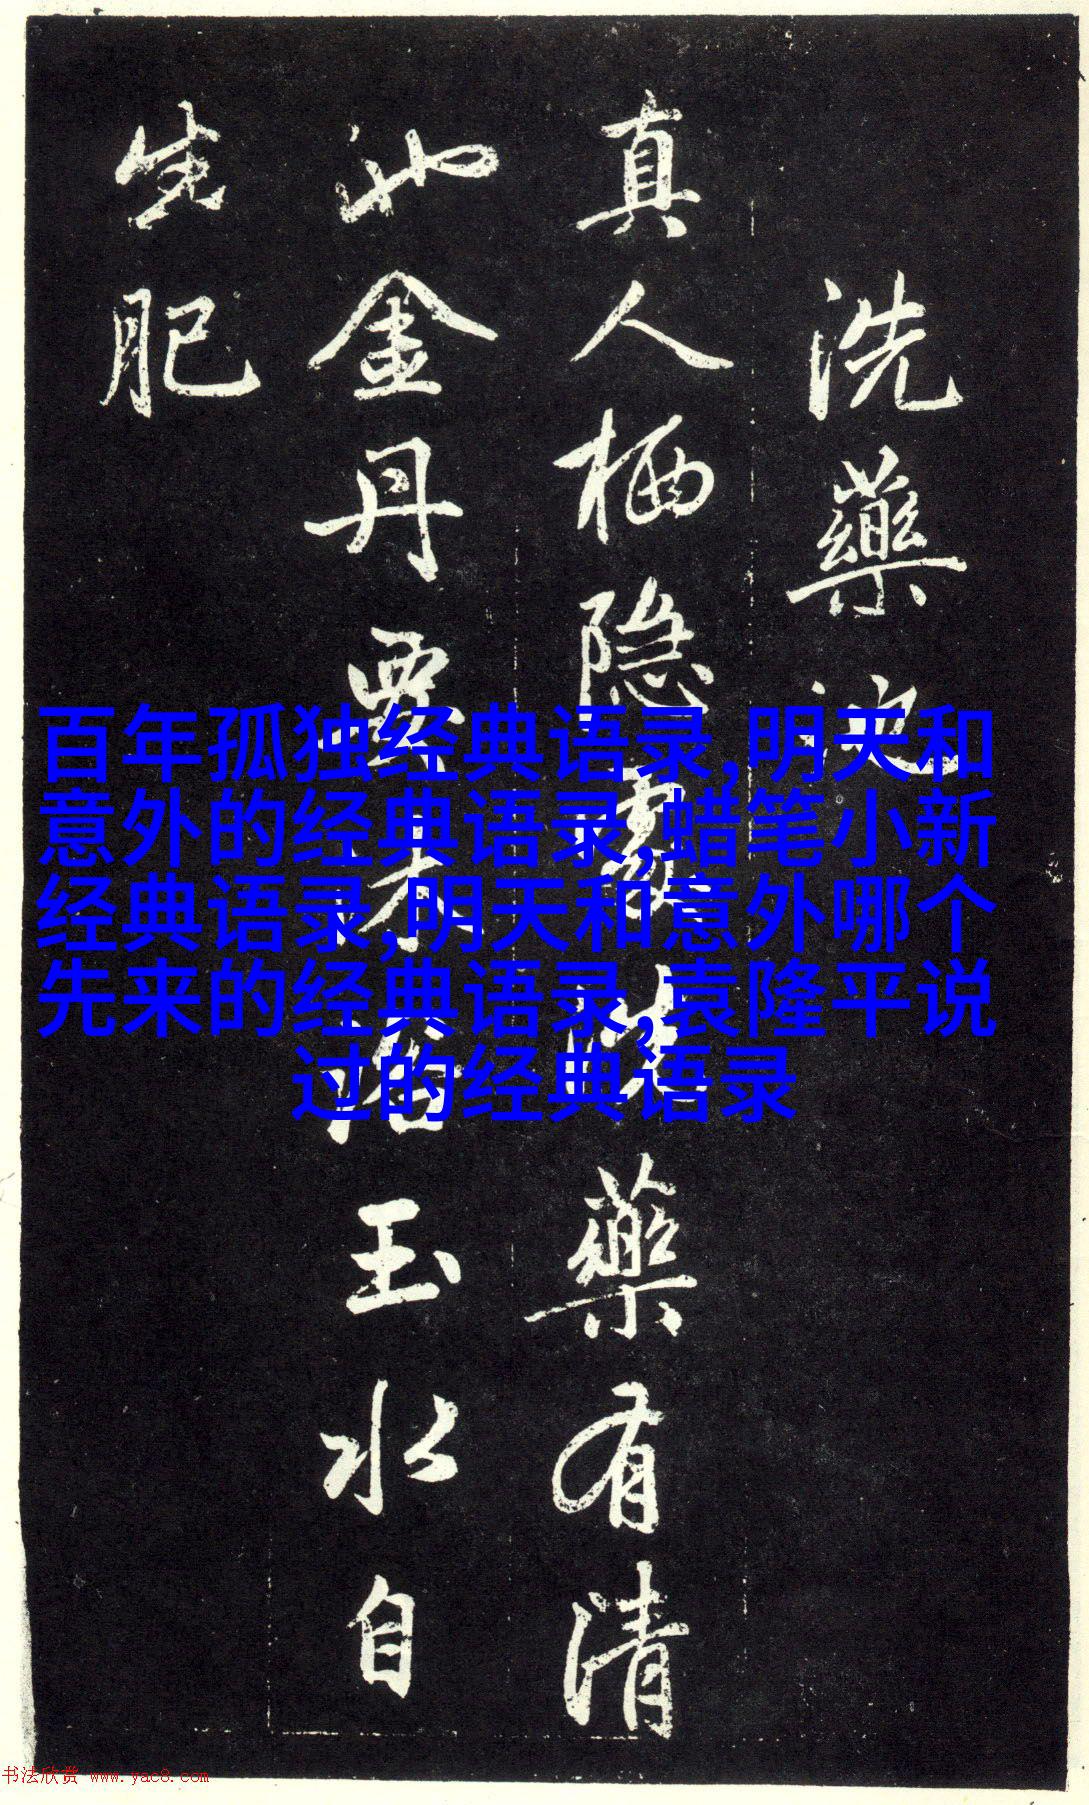 洗藥池
真人栖隐處洗藥有清
池金丹要沐浴玉水自
生肥
百年孤独经典语录,明天和
意外的经典语录,蜡笔小新
经典语录,明天和意外哪个
先来的经典语录,袁隆平说
过的经典语录
书法欣赏 www.yac8.com